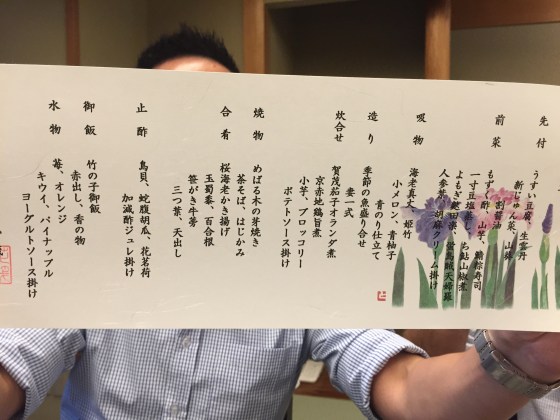 先付
うすい豆腐、生雲丹
新じゅん菜、山葵
割醤油
前菜
もずく酢、山芋、鱚粽寿司
一寸豆塩蒸し、
よもぎ麩田楽、蛍烏賊天峰羅
人参葉、胡麻クリーム掛け
吸物
海老真丈、姫竹
小メロン、青柚子
造り
季節の魚盛り合せ
青のり仕立て
妻一式
炊合せ
賀茂茄子オランダ煮
京赤地鶏旨煮
小芋、ブロッコリー
ポテトソース掛け
焼物
めばる木の芽焼き
茶そば、はじかみ
合肴
桜海老かき揚げ
玉蜀黍、百合根
笹がき牛蒡
三つ葉、天出し
止酢
鳥貝、蛇腹胡瓜、花茗荷
加減酢ジュレ掛け
御飯
竹の子御飯
赤出し、香の物
水物
苺、オレンジ
キウイ、パイナップル
ヨーグルトソース掛け